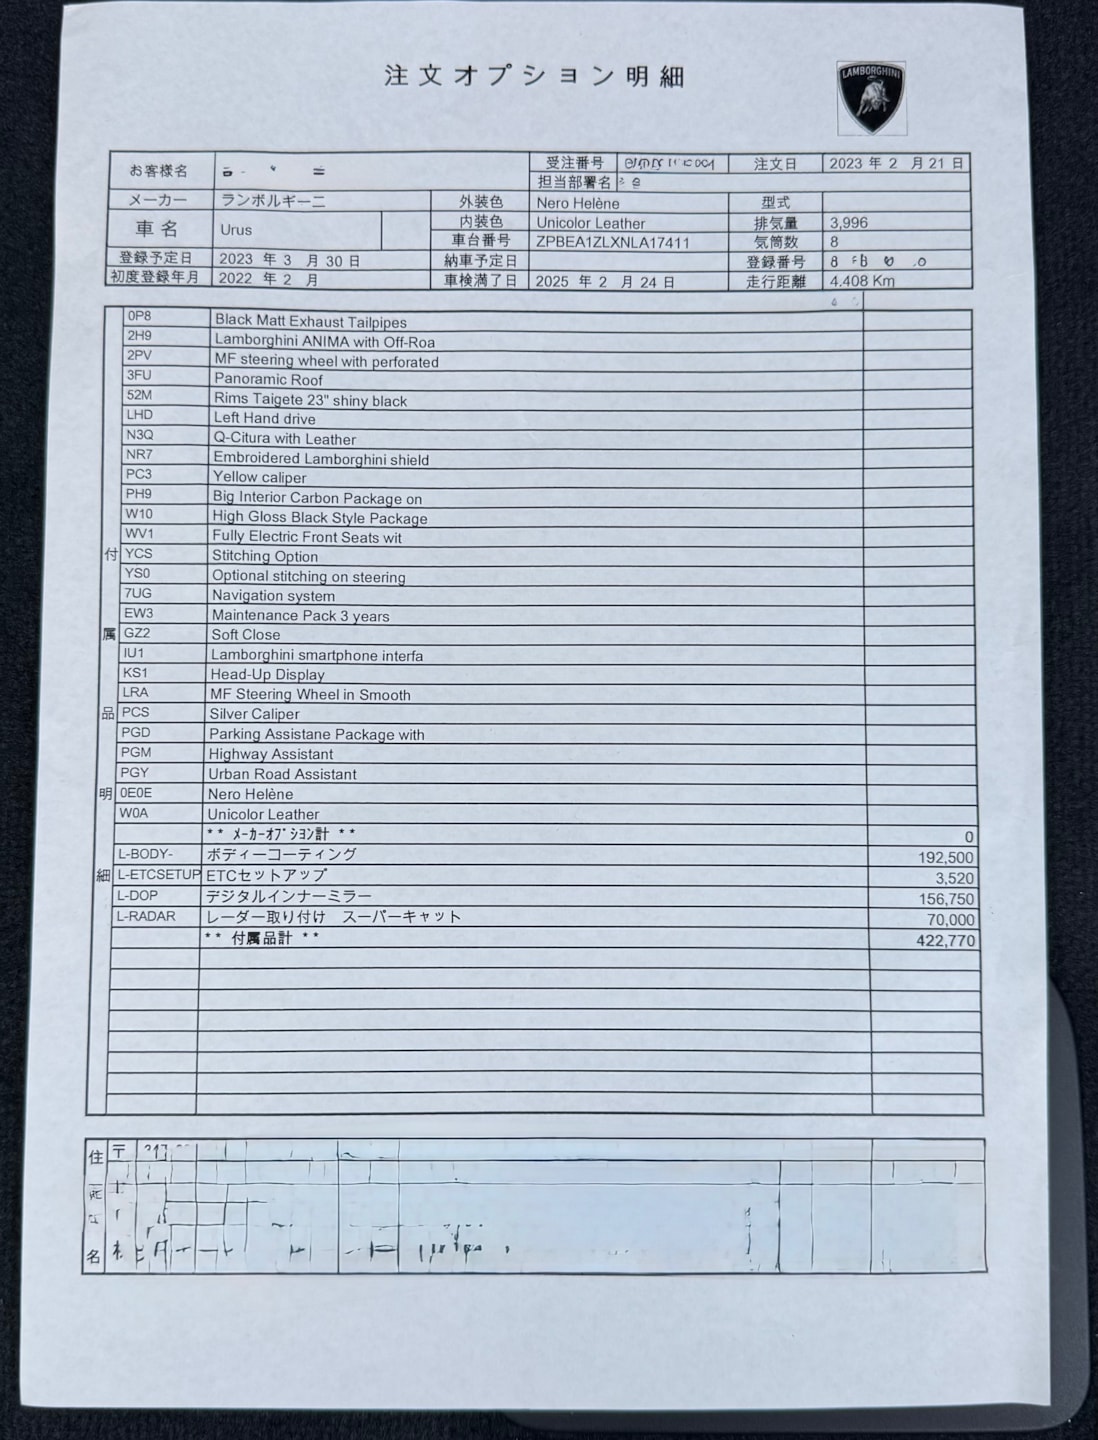 注文オプション明細
LAMBORGHINI
お客様名
受注番号 注文日 2023 年 2 月 21 日
担当部署名
メーカー ランボルギーニ 外装色 Nero Helène 型式
車名 Urus 内装色 Unicolor Leather 排気量 3,996
車台番号 ZPBEA1ZLXNLA17411 気筒数 8
登録予定日 2023 年 3 月 30 日 納車予定日 登録番号
初度登録年月 2022 年 2 月 車検満了日 2025 年 2 月 24 日 走行距離 4.408 Km
付属品明細
0P8 Black Matt Exhaust Tailpipes
2H9 Lamborghini ANIMA with Off-Roa
2PV MF steering wheel with perforated
3FU Panoramic Roof
52M Rims Taigete 23" shiny black
LHD Left Hand drive
N3Q Q-Citura with Leather
NR7 Embroidered Lamborghini shield
PC3 Yellow caliper
PH9 Big Interior Carbon Package on
W10 High Gloss Black Style Package
WV1 Fully Electric Front Seats wit
YCS Stitching Option
YS0 Optional stitching on steering
7UG Navigation system
EW3 Maintenance Pack 3 years
GZ2 Soft Close
IU1 Lamborghini smartphone interfa
KS1 Head-Up Display
LRA MF Steering Wheel in Smooth
PCS Silver Caliper
PGD Parking Assistane Package with
PGM Highway Assistant
PGY Urban Road Assistant
0E0E Nero Helène
W0A Unicolor Leather
** ﾒｰｶｰｵﾌﾟｼｮﾝ計 ** 0
L-BODY- ボディーコーティング 192,500
L-ETCSETUP ETCセットアップ 3,520
L-DOP デジタルインナーミラー 156,750
L-RADAR レーダー取り付け スーパーキャット 70,000
** 付属品計 ** 422,770
住 〒
名